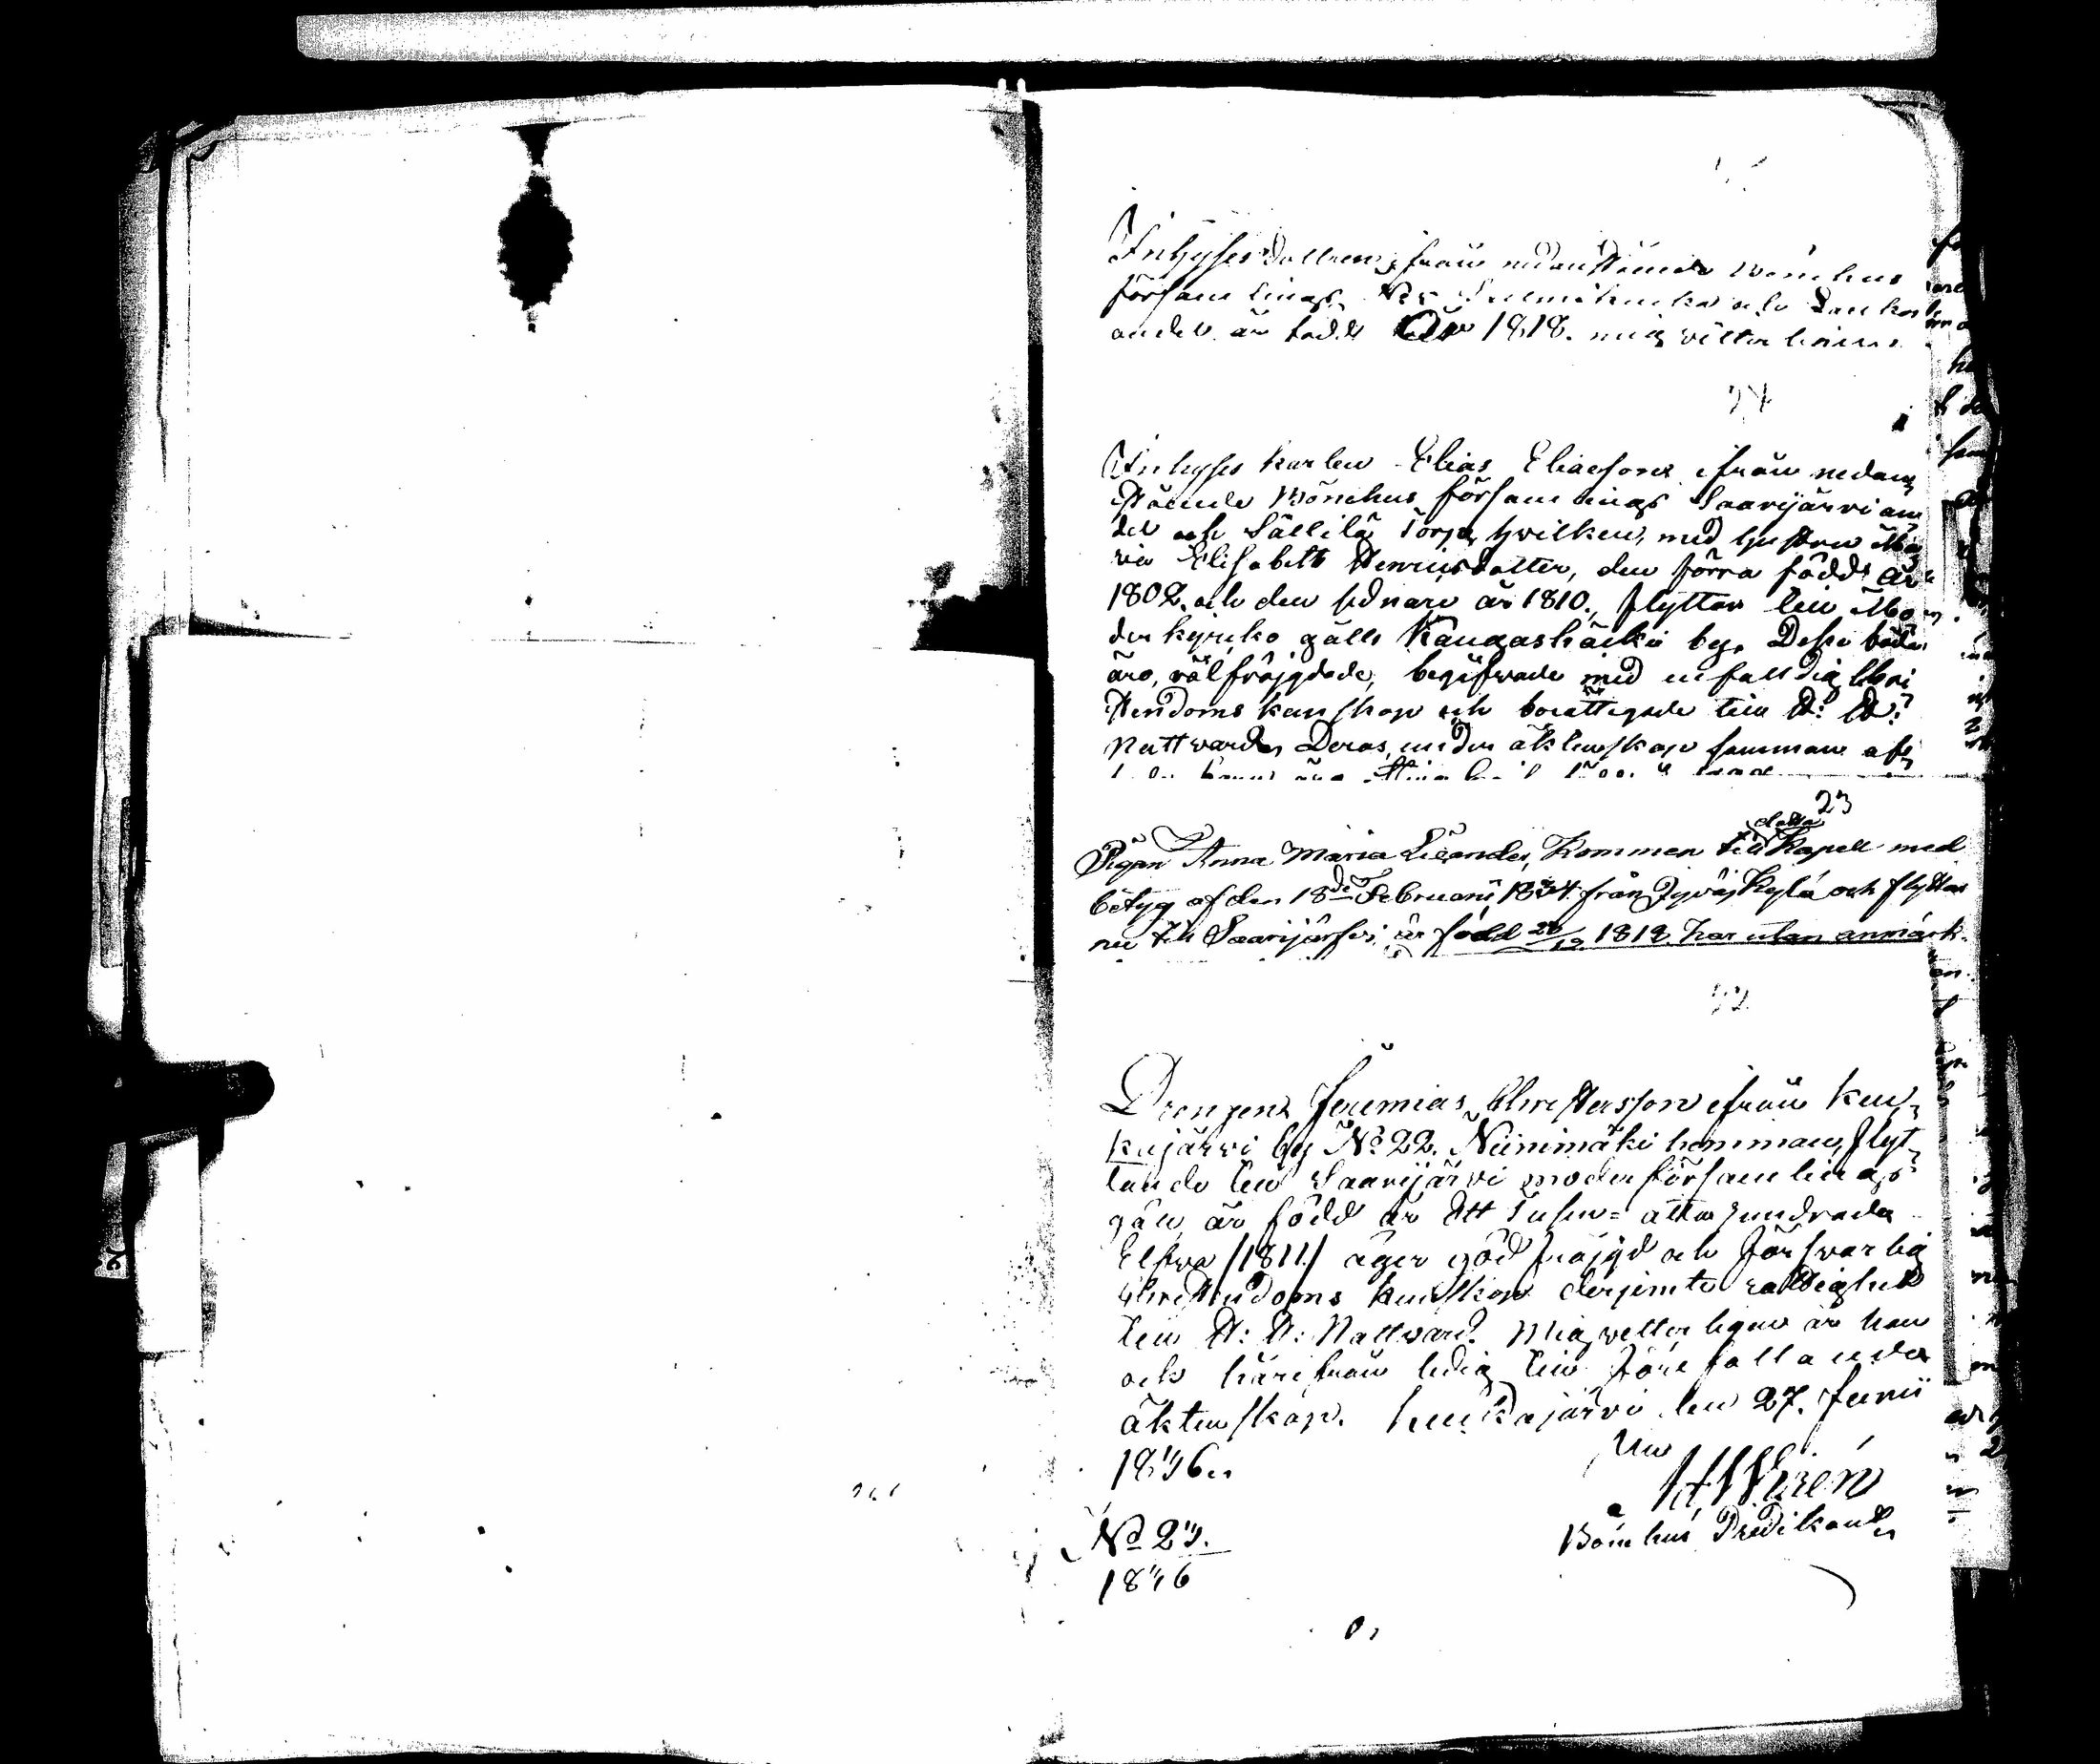 Inhyses dottren ifrån nedanstående Bönehus
församlings
andel är född År 1818. mig vitterligen
24
Inhyses karlen Elias Eliaesson ifrån nedan
stående Bönehus församlings Saarijärvi an
del och Sällilä Torp, hvilken, med hustru Ma
ria Elisabeth Henricsdotter, den förra född år
1802. och den sednare år 1810., flyttar till Mo
der kyrko gälls Kangashäkki by. Desse båda
äro, välfräjgdade, begåfvade med enfalldig Chri
stendoms kunskap och berättigade till H: H:
Nattvard. Deras, under äktenskap samman af
23
detta
Pigan Anna Maria Lilander, Kommen till Kapell med
betyg af den 18de Februarii 1834 från Jyväskylä och flyttar
nu till Saarijärfvi, är född 28/12 1818 har utan anmärk-
22.
Drengen Jeremias Christersson ifrån Keu
kujärvi by No 22. Niinimäki hemman, flyt
tande till Saarijärvi moderförsamlings
gäll, är född år Ett Tusen= åtta hundrade
Elfva /1811/ äger god fräjgd och försvarlig
Christendoms kunskap derjemte rättighet
till H: H: Nattvard. Mig vetterligen är han
och härifrån ledig till förefallande
äktenskap. den 27. Junii
1846.
No 24.
1846
Bönehus Predikant